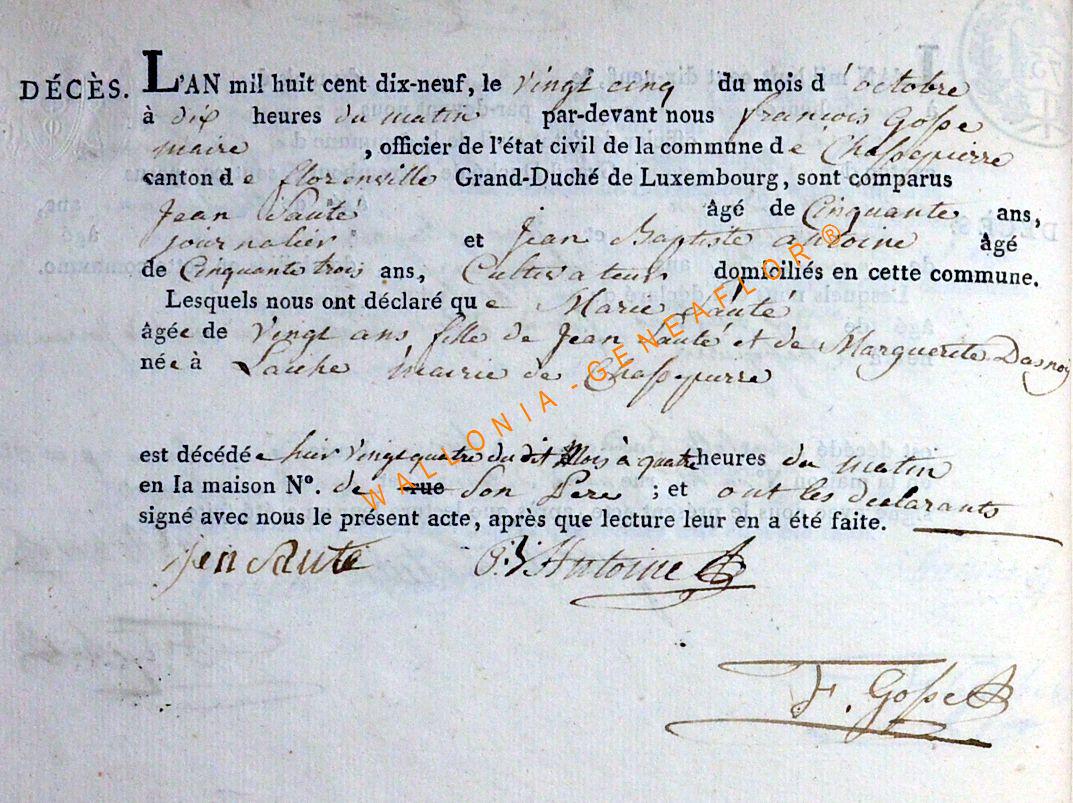 DÉCÈS. L'AN mil huit cent dix-neuf, le vingt cinq du mois d'octobre
à dix heures du matin par-devant nous françois Gosse
maire, officier de l'état civil de la commune de Chassepierre
canton de florenville Grand-Duché de Luxembourg, sont comparus
Jean Sauté âgé de Cinquante ans,
journalier et Jean Baptiste antoine âgé
de Cinquante trois ans, Cultivateurs domiciliés en cette commune.
Lesquels nous ont déclaré que Marie Sauté
âgée de vingt ans, fille de Jean Sauté et de Marguerite Dasnoy
née à Laiche mairie de Chassepierre
est décédée hier vingt quatre du dit Mois à quatre heures du matin
en la maison N°. de rue Son Père ; et ont les declarants
signé avec nous le présent acte, après que lecture leur en a été faite.
Jen Saute J.B Antoine
F. Gosse
WALLONIA - GENEAFLOR ®